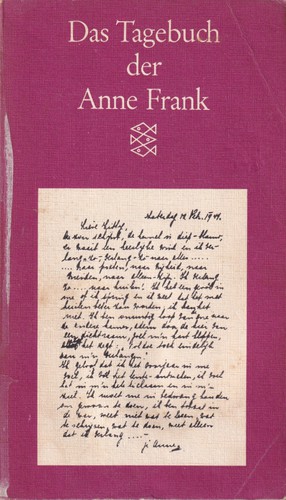 Das Tagebuch
der
Anne Frank
Zaterdag 12 Feb. 1944.
Lieve Kitty,
De zon schijnt, de hemel is diep-blauw,
er waait een heerlijke wind en ik ver-
lang-zo-, verlang-zo- naar alles.....
.... naar praten, naar vrijheid, naar
vrienden, naar alleen-zijn. Ik verlang
zo..... naar huilen! Ik heb een gevoel in
me of ik spring en ik weet het met
huilen beter zou worden, ik kan het
niet. Ik ben onrustig loop van de ene naar
de andere kamer, adem door de kier van
een dicht raam, voel m'n hart kloppen,
alsof het zegt: "Voldoe toch eindelijk
aan m'n verlangens".
Ik geloof dat ik het voorjaar in me
voel, ik voel het lente-ontwaken, ik voel
het in m'n hele lichaam en in m'n
ziel. Ik moet me in bedwang houden
om gewoon te doen, ik ben totaal in
de war, weet niet wat te lezen, wat
te schrijven, wat te doen, weet alleen
dat ik verlang .....
je Anne